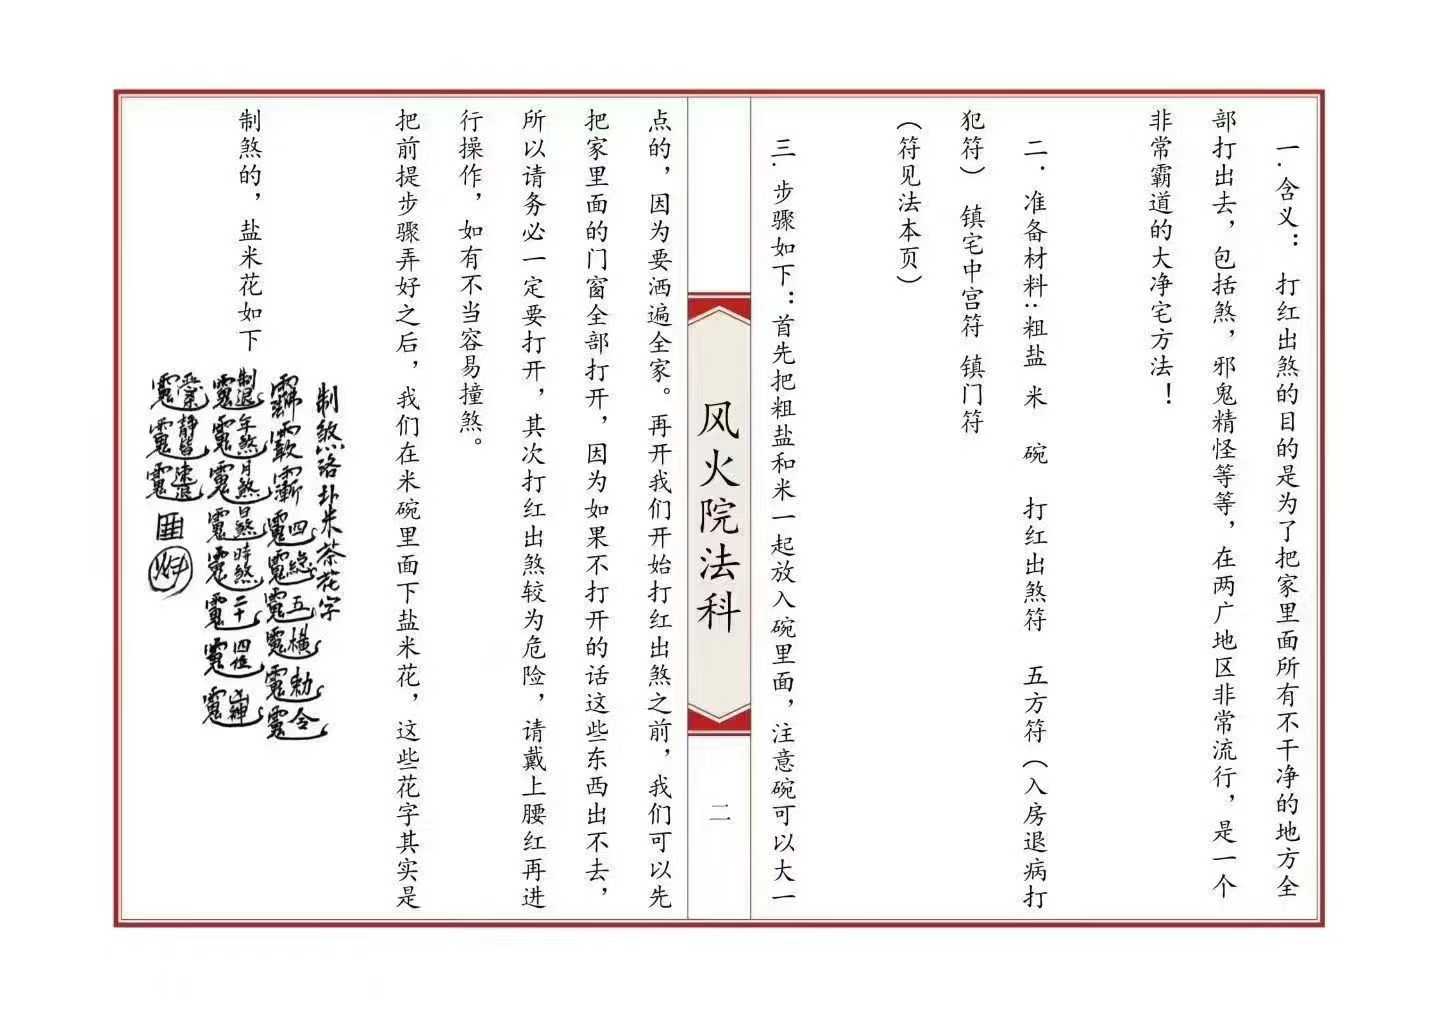 一.含义： 打红出煞的目的是为了把家里面所有不干净的地方全
部打出去，包括煞，邪鬼精怪等等，在两广地区非常流行，是一个
非常霸道的大净宅方法！
二．准备材料:粗盐 米 碗 打红出煞符 五方符（入房退病打
犯符） 镇宅中宫符 镇门符
（符见法本页）
三.步骤如下：首先把粗盐和米一起放入碗里面，注意碗可以大一
风火院法科
二
点的，因为要洒遍全家。再开我们开始打红出煞之前，我们可以先
把家里面的门窗全部打开，因为如果不打开的话这些东西出不去，
所以请务必一定要打开，其次打红出煞较为危险，请戴上腰红再进
行操作，如有不当容易撞煞。
把前提步骤弄好之后，我们在米碗里面下盐米花，这些花字其实是
制煞的，盐米花如下
制煞
米茶花字
四 五横 勅令
制 年煞 月煞 日煞 時煞 二十四位 凶神
静 速